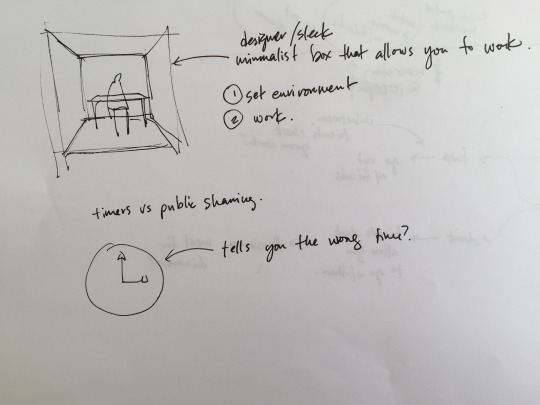 designer/sleek
minimalist box that allows you to work.
① set environment
② work.
timers vs public shaming.
tells you the wrong time?